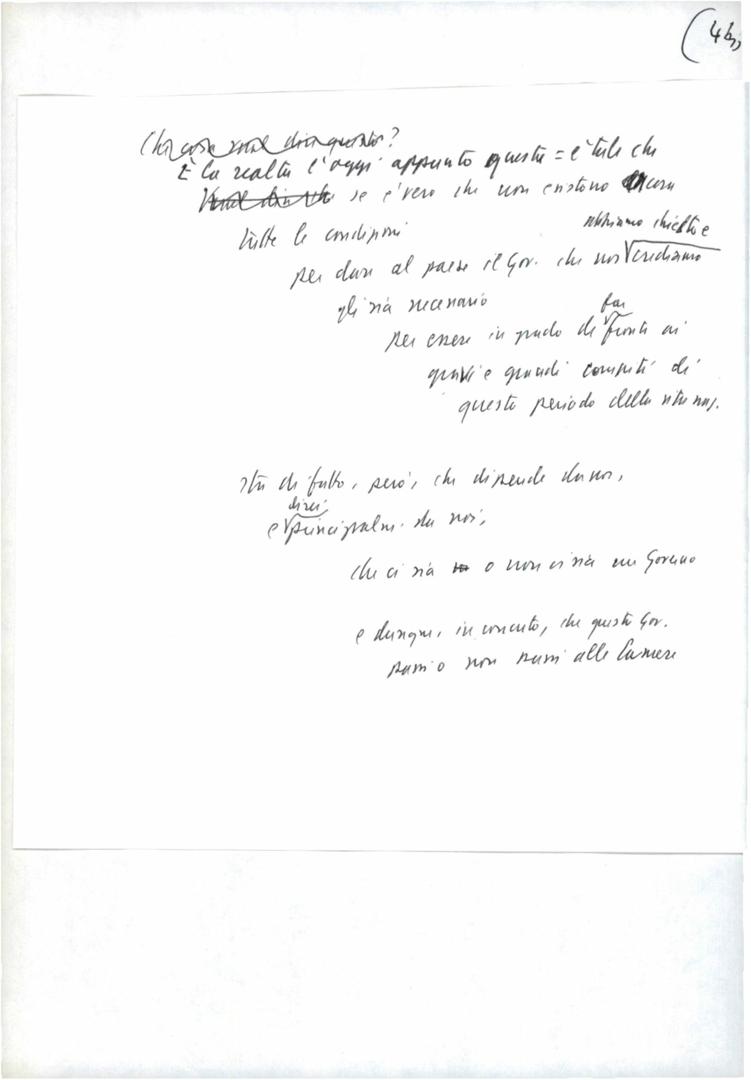 (4 bis
Che cosa vuol dire questo?
E la realtà d'oggi appunto questa = è tale che
Vuol dire che se è vero che non esistono ancora
tutte le condizioni
abbiamo chiesto e
per dare al paese il Gov. che noi crediamo
gli sia necessario
far
per essere in grado di fronte ai
gravi e grandi compiti di
questo periodo della vita naz.
sta di fatto, però, che dipende da noi,
direi
e principalm. da noi,
che ci sia o non ci sia un Governo
e dunque, in concreto, che questo Gov.
passi o non passi alle Camere